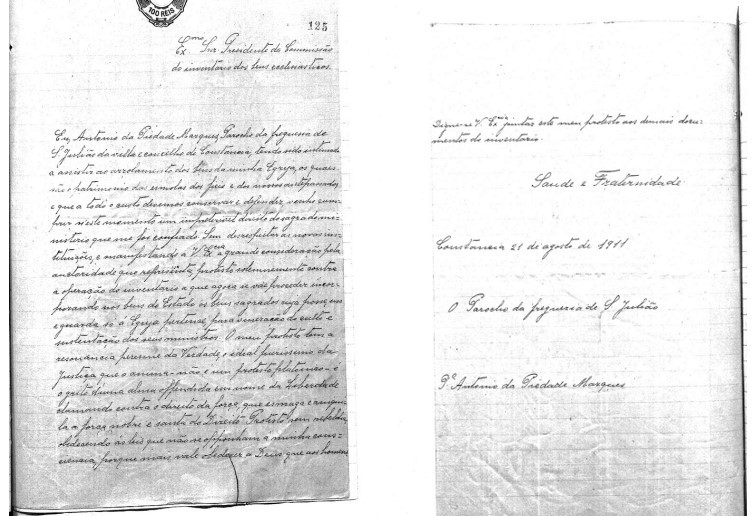 100 REIS
125
Ex.mo Snr. Presidente da Commissão
do inventario dos bens ecclesiasticos.
Eu, Antonio da Piedade Marques, Parocho da freguesia de
S. Julião da villa e concelho de Constancia, tendo sido intimado
a assistir ao arrolamento dos bens da minha Egreja, os quaes
são o patrimonio das esmolas dos fieis e dos nossos antepassados,
e que a todo o custo devemos conservar e defender, venho cum-
prir n'este momento um impreterivel direito do sagrado mi-
nisterio que me foi confiado. Sem desrespeitar as novas ins-
tituições, e manifestando a V. Ex.cia a grande consideração pela
auctoridade que representa, protesto solemnemente contra
a operação do inventario a que agora se vae proceder incor-
porando nos bens do Estado os bens sagrados cuja posse, uso
e guarda só á Egreja pertence, para veneração do culto e
sustentação dos seus ministros. O meu protesto tem a
resonancia perenne da Verdade, o ideal purissimo da
Justiça que o anima - não é um protesto platonico - é
o grito d'uma alma offendida em nome da Liberdade
clamando contra o direito da força, que esmaga e aniqui-
la a força nobre e santa do Direito. Protesto sem rebeldia
obedecendo ás leis que não se opponham a minha cons-
ciencia, porque mais vale obedecer a Deus que aos homens
Digne-se V. Ex.cia juntar este meu protesto aos demais docu-
mentos do inventario.
Saude e Fraternidade
Constancia 21 de agosto de 1911
O Parocho da freguesia de S. Julião
P.e Antonio da Piedade Marques